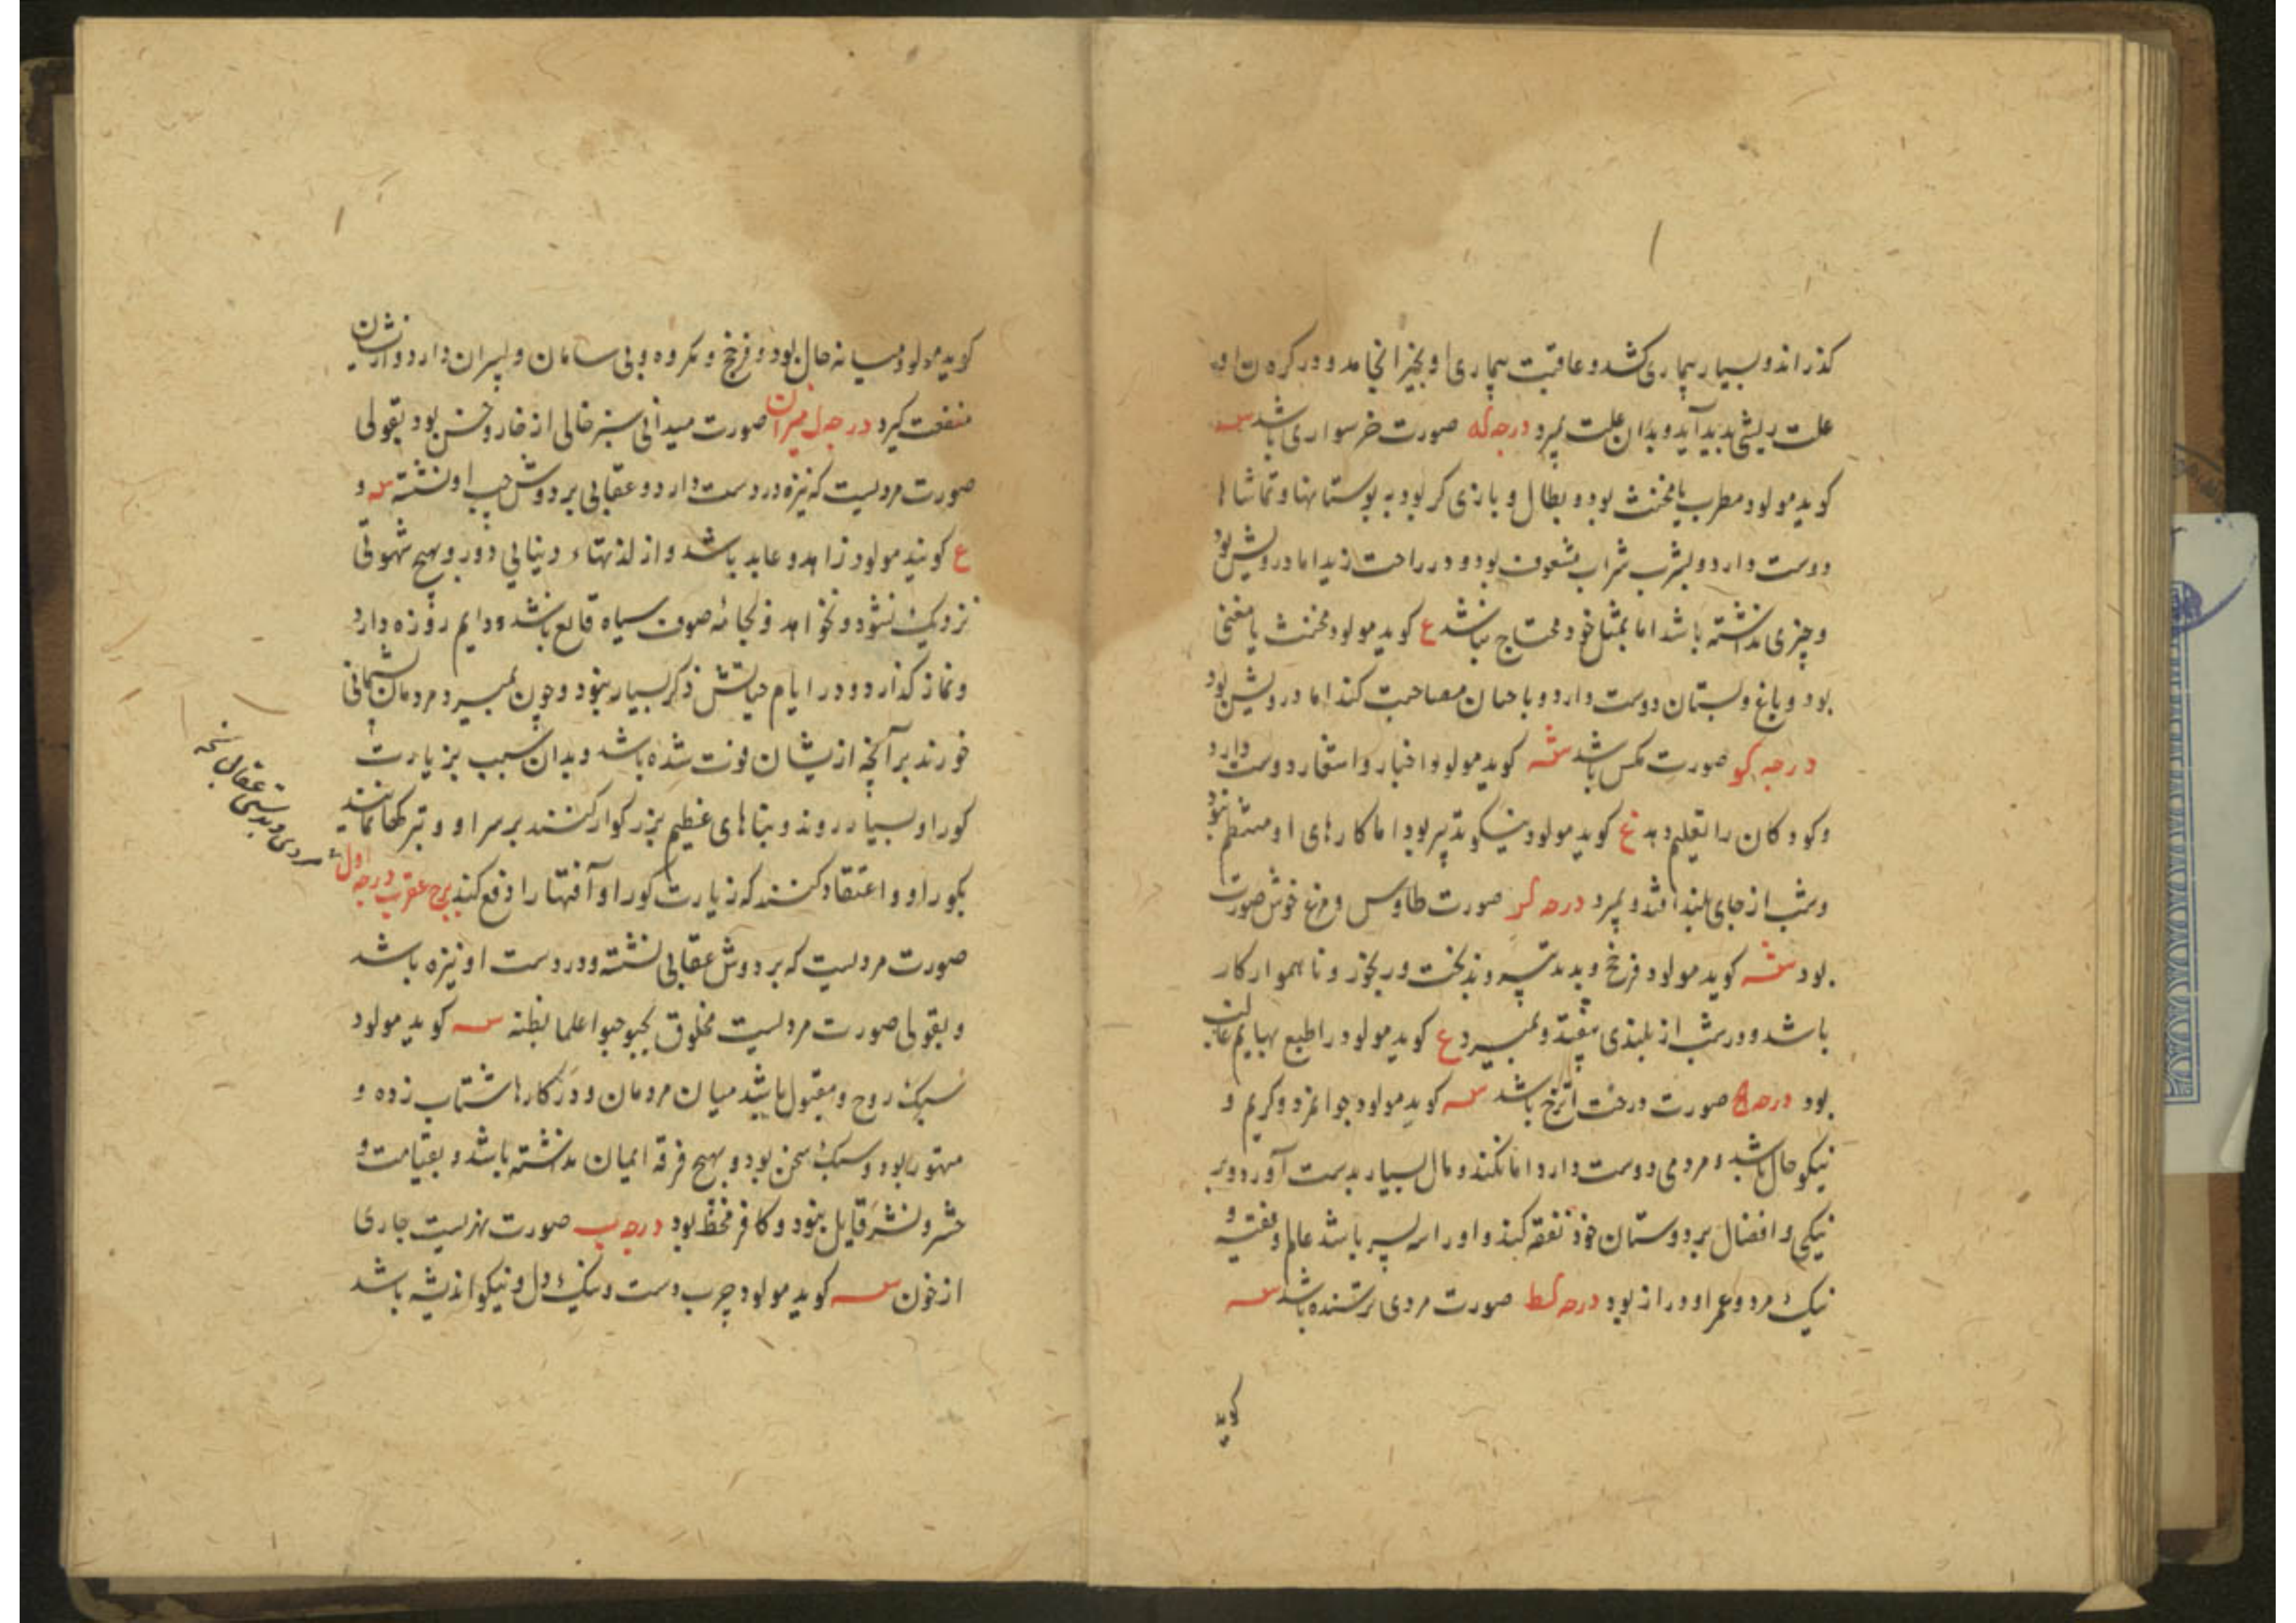 کذراند و بسیار بیماری کشد و عاقبت بیماری او بخیر انجامد و در کرده ن او
علت ریشی پدید آید و بدان علت بمیرد درجه که صورت خرسواری باشد س
کوید مولود مطرب یا مخنث بود و بطال و بازی کر بود به بوستانها و تماشاها
دوست دارد و بشرب شراب مشعوف بود و در راحت زید اما درویش بود
و چیزی نداشته باشد اما بمثل خود محتاج نباشد ع کوید مولود مخنث یا مغنی
بود و باغ و بستان دوست دارد و با مصاحبت کند اما درویش بود
درجه کو صورت مکس باشد کوید مولود اخبار و اشعار دوست دارد
و کودکان را تعلیم دهد ع کوید مولود نیکو تدبیر بود اما کارهای او منتظم نبود
و شب از جای بلند افتد و بمیرد درجه کز صورت طاوس و مرغ خوش صورت
بود کوید مولود فرخ و و بدبخت و رنجور و ناهموار کار
باشد و در شب از بلندی بیفتد و بمیرد ع کوید مولود را طبع بهایم غالب
بود درجه کح صورت درخت اترج باشد س کوید مولود جوانمرد و کریم و
نیکو حال باشد و مردمی دوست دارد اما نکند و مال بسیار بدست آورد و بر
نیکی و افضال بر دوستان خود نفقه کند و او را سه پسر باشد عالم و فقیه و
نیک مرد و عمر او دراز بود درجه کط صورت مردی ترسنده باشد س
کوید
کوید مولود میانه حال بود و فرخ و مکروه و بی سامان و پسران دارد و از ایشان
منفعت کیرد درجه ل میزان صورت میدانی سبز خالی از خار و خس بود بقولی
صورت مردیست که نیزه در دست دارد و عقابی بر دوش چپ او نشسته س و
ع کویند مولود زاهد و عابد باشد و از لذتهاء دنیایی دور و بهیچ شهوتی
نزدیک نشود و نخواهد و بجامه صوف سیاه قانع باشد و دایم روزه دارد
و نماز کذارد و در ایام حیاتش ذکر بسیار نبود و چون بمیرد مردمان پشیمانی
خورند بر آنچه ازیشان فوت شده باشد و بدان سبب بزیارت
کور او بسیار روند و بناهای عظیم بزرکوار کنند بر سر او و تبرکها نمایند
بکور او و اعتقاد کنند که زیارت کور او آفتها را دفع کند برج عقرب درجه اول
صورت مردیست که بر دوش عقابی نشسته و در دست او نیزه باشد
و بقولی صورت مردیست مخلوق س کوید مولود
سبک روح و مقبول باشد میان مردمان و در کارها شتاب زده و
متهور بود و سبک سخن بود و بهیچ فرقه ایمان نداشته باشد و بقیامت و
حشر و نشر قایل نبود و کافر محض بود درجه ب صورت نهریست جاری
از خون س کوید مولود چرب دست و نیک دل و نیکو اندیشه باشد
مردی و بدستش عقابی نسخه